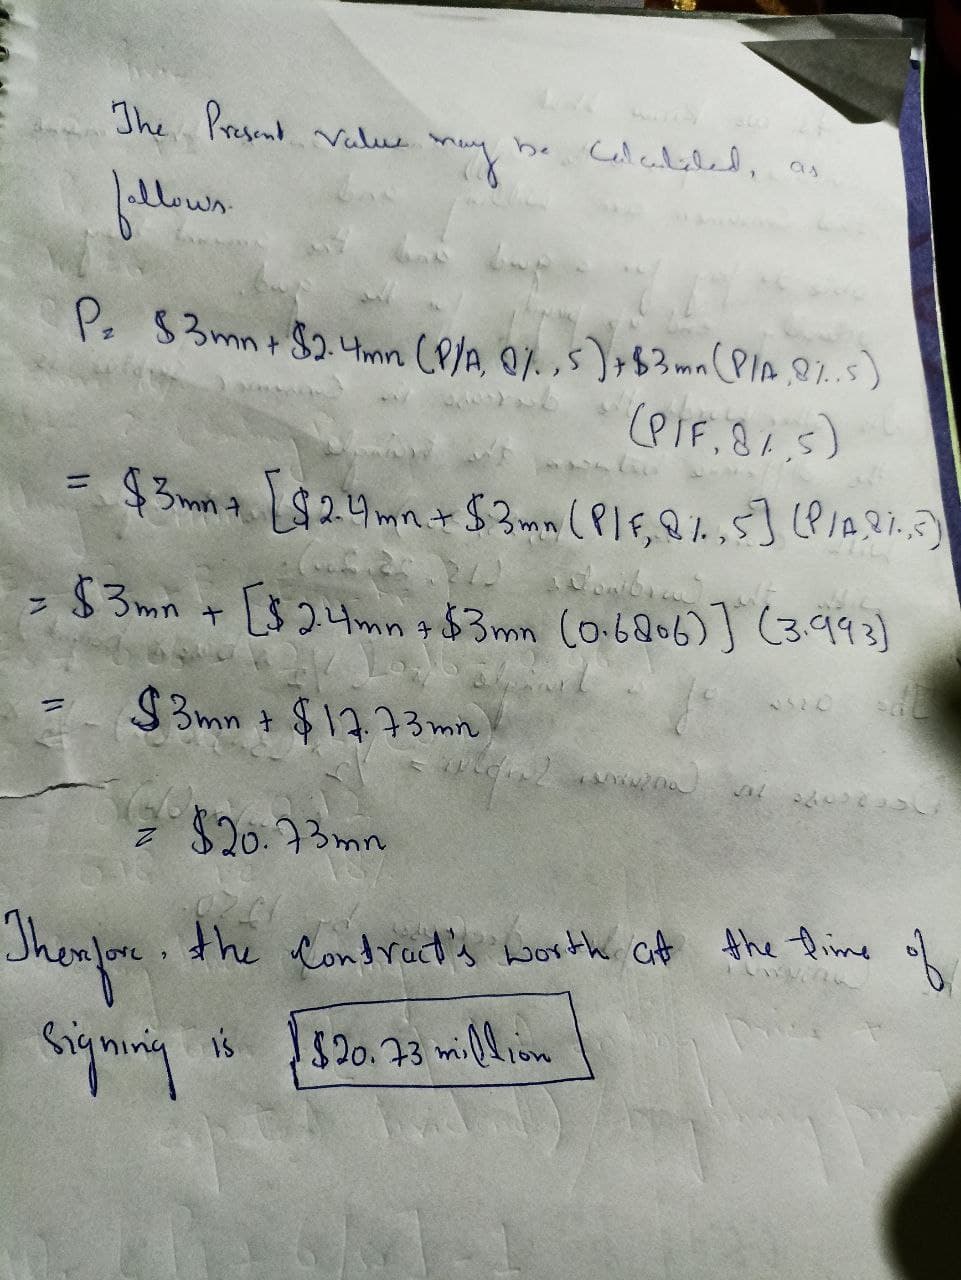 The Present value may be calculated, as
follows.
P = $3mn + $2.4mn (P/A, 8%, 5) + $3mn (P/A, 8%, 5)
(P/F, 8%, 5)
= $3mn + [$2.4mn + $3mn (P/F, 8%, 5] (P/A, 8%, 5)
= $3mn + [$2.4mn + $3mn (0.6806)] (3.993)
= $3mn + $17.73mn
= $20.73mn
Therefore, the Contract's worth at the time of
signing is $20.73 million